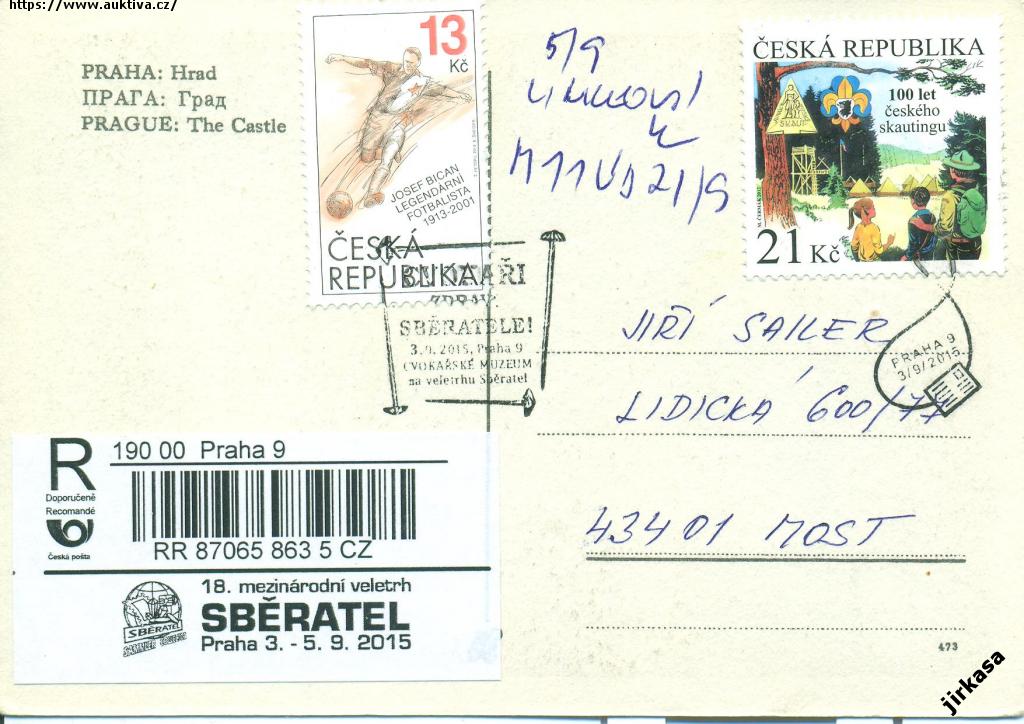 https://www.auktiva.cz/
PRAHA: Hrad
ПРАГА: Град
PRAGUE: The Castle
13
Kč
JOSEF BICAN
LEGENDÁRNÍ
FOTBALISTA
1913-2001
ČESKÁ
REPUBLIKA
5/9
21/9
ČESKÁ REPUBLIKA
100 let
českého
skautingu
21 Kč
SBĚRATELÉ!
3.9.2015, Praha 9
CVOKAŘSKÉ MUZEUM
na veletrhu Sběratel
PRAHA 9
3/9/2015
JIŘÍ SAILER
LIDICKÁ 600/77
43401 MOST
R
Doporučeně
Recomandé
Česká pošta
190 00 Praha 9
RR 87065 863 5 CZ
18. mezinárodní veletrh
SBĚRATEL
Praha 3. - 5. 9. 2015
SBĚRATEL
473
jirkasa